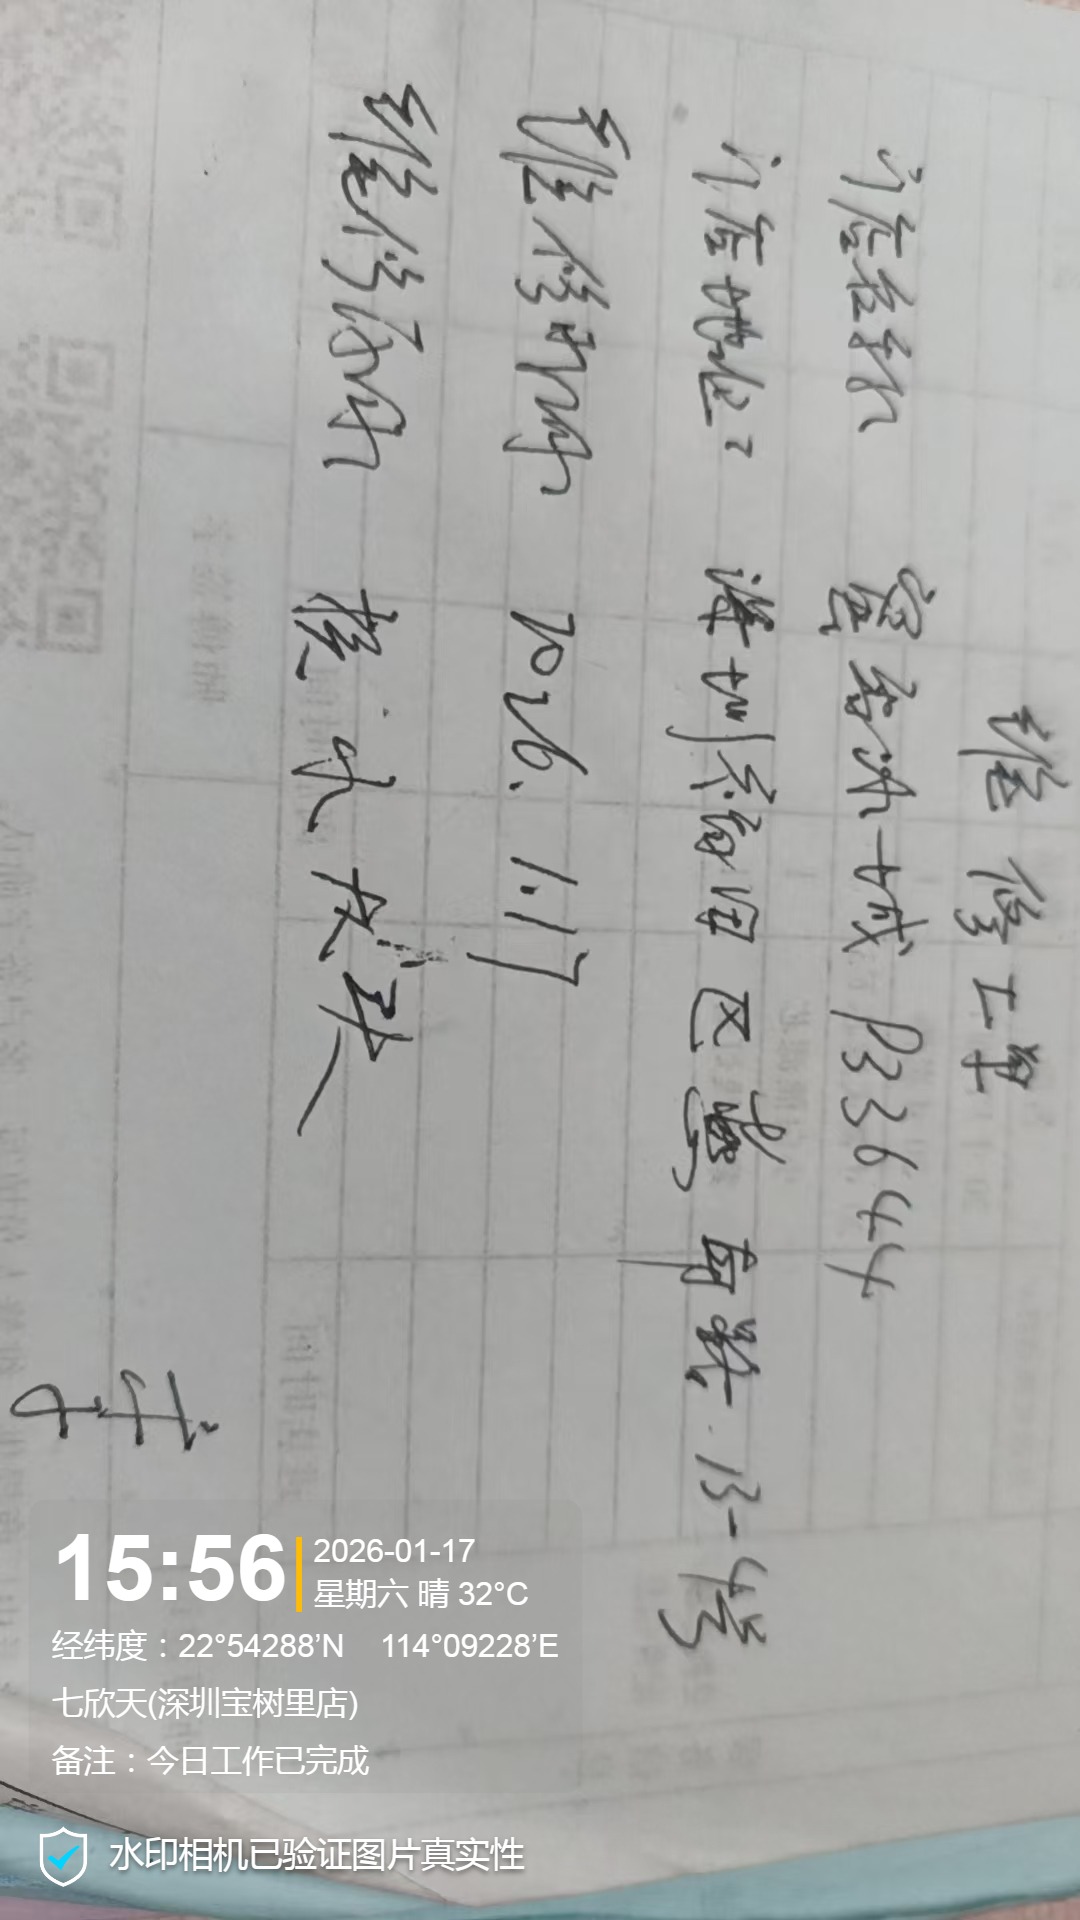 维修工单
门店名称 蜜雪冰城 P33644
门店地址: 深圳 福田区 南 13-4号
维修时间 2026.1.17
维修内容 换 水
15:56
2026-01-17
星期六 晴 32°C
经纬度：22°54288’N 114°09228’E
七欣天(深圳宝树里店)
备注：今日工作已完成
水印相机已验证图片真实性